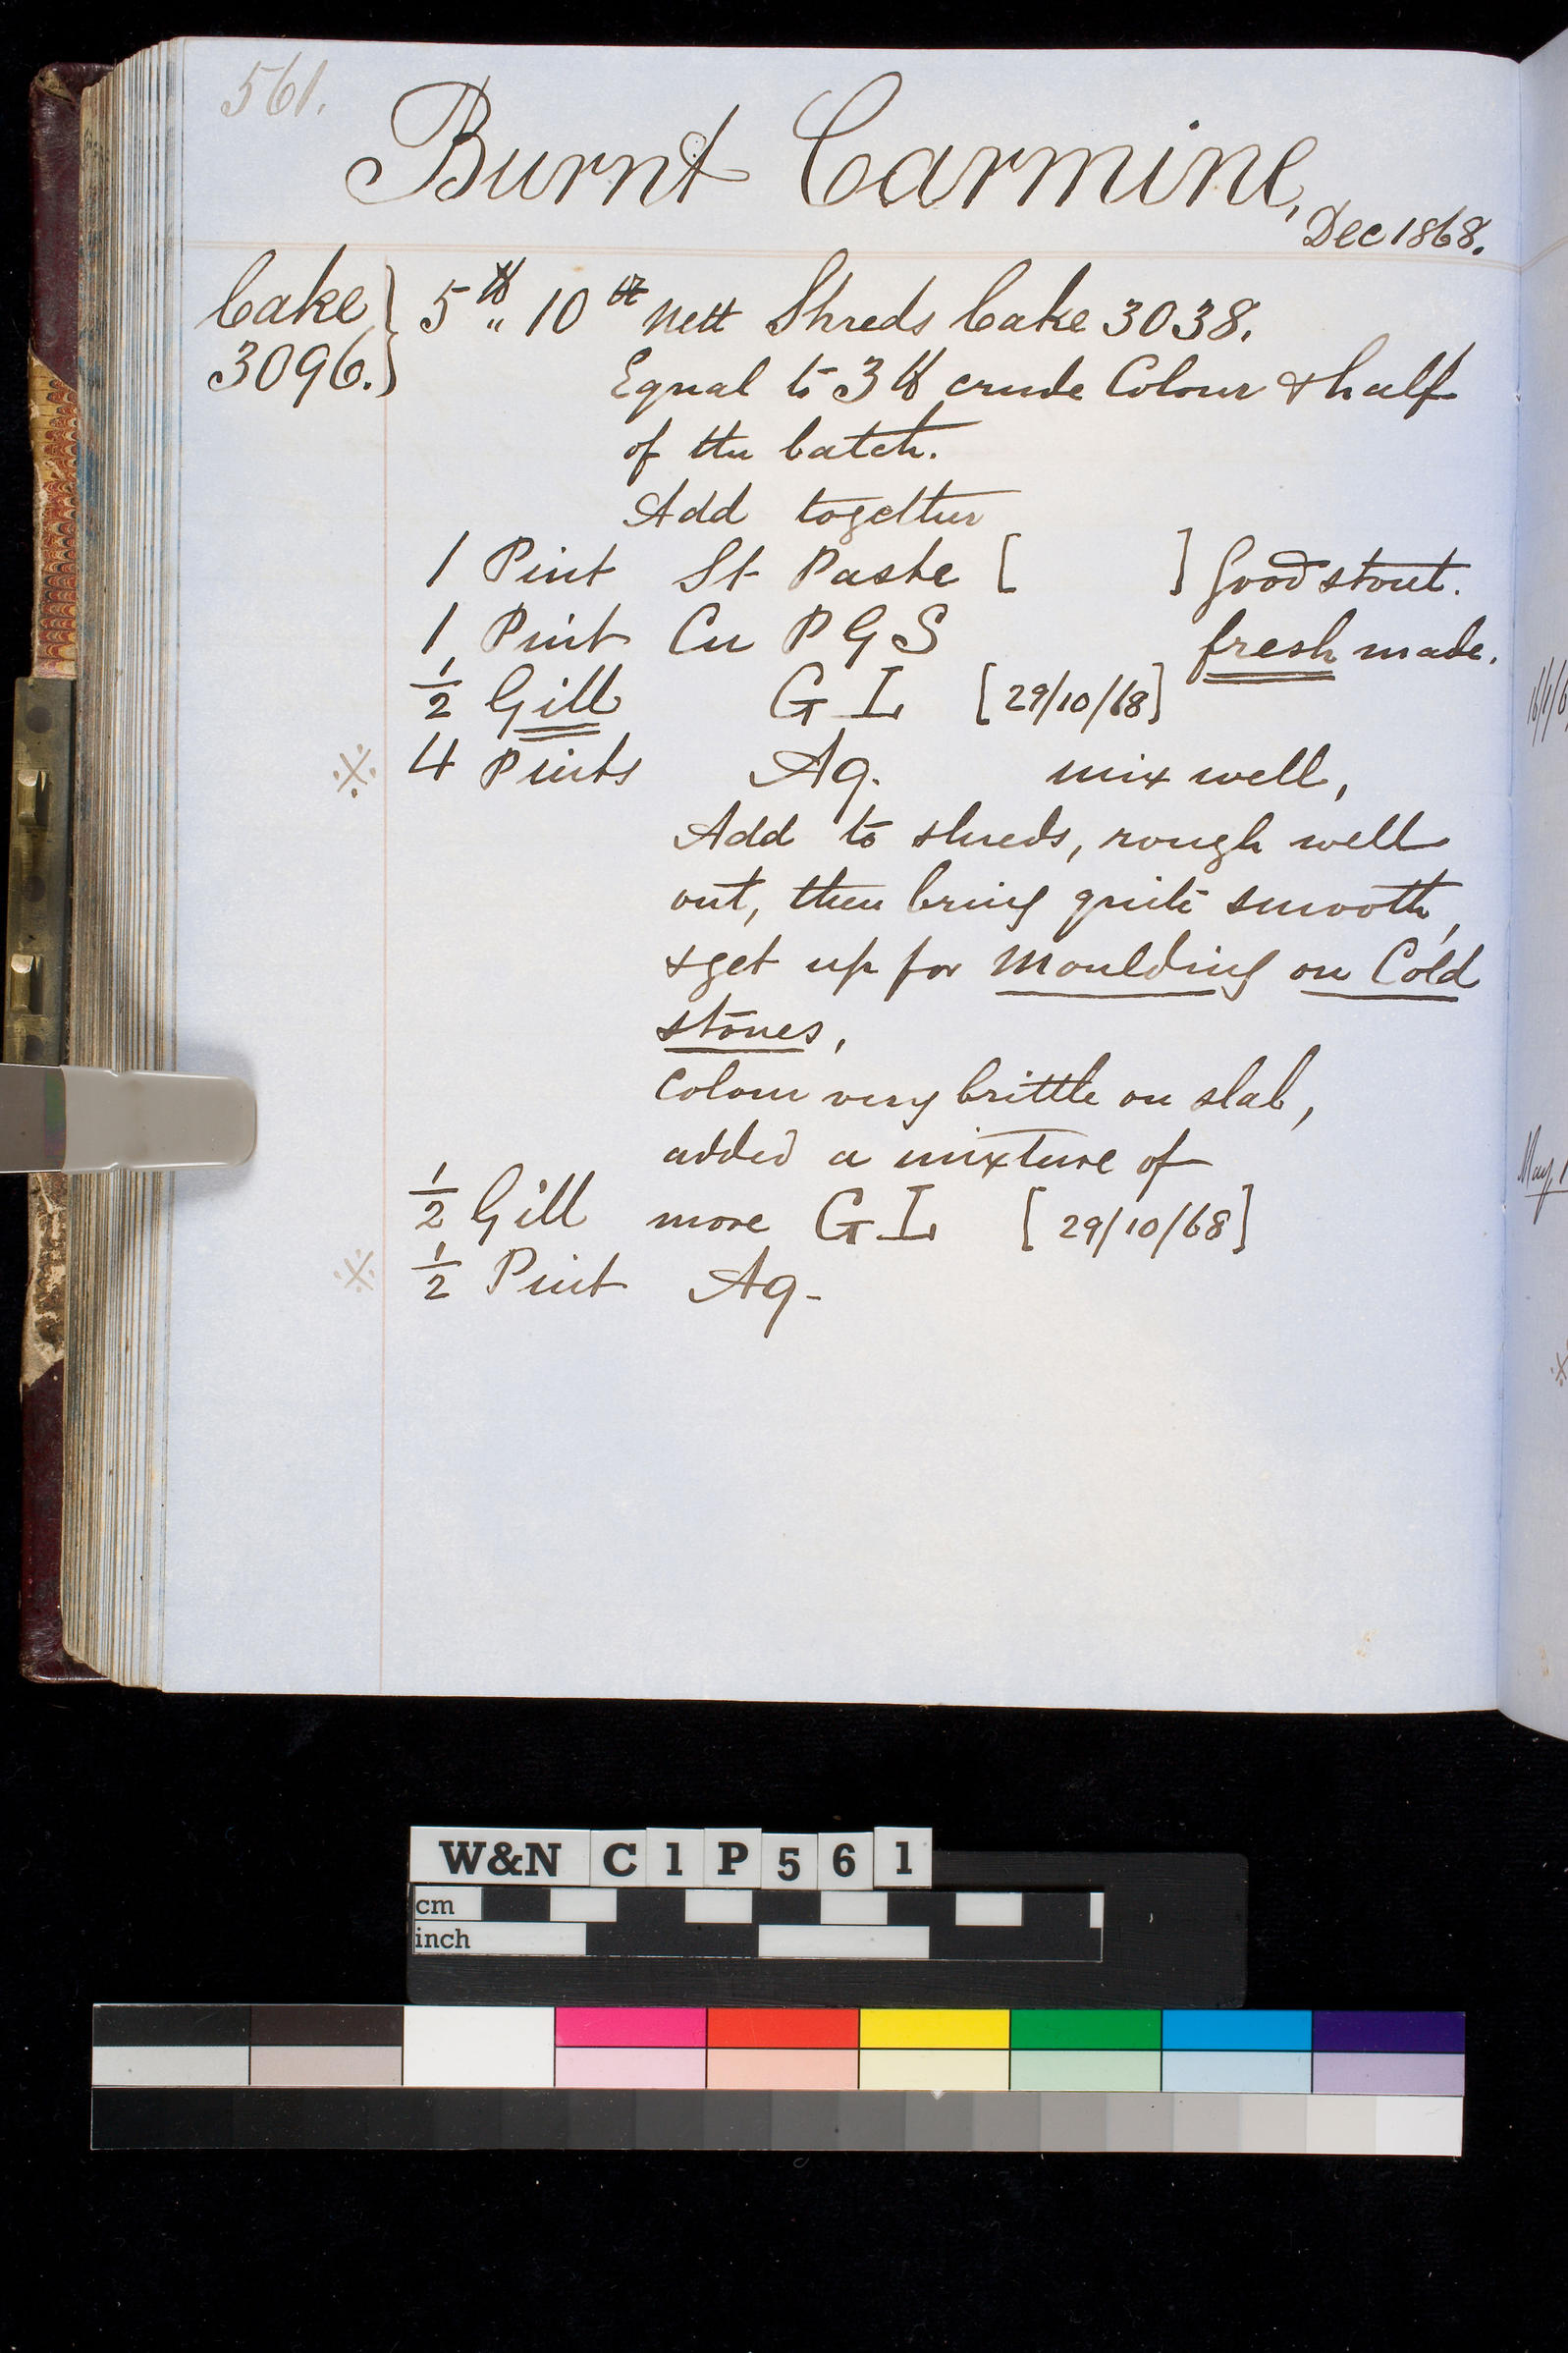 561.
Burnt Carmine,
Dec 1868.
Cake } 5 lb " 10 oz nett Shreds Cake 3038.
3096. }
Equal to 3 lb crude Colour & half
of the batch.
Add together
1 Pint St Paste [ ] Good stout.
1 Pint Cu P G S fresh made.
1/2 Gill G L [29/10/68]
※ 4 Pints Aq. mix well,
Add to shreds, rough well
out, then bring quite smooth,
& get up for Moulding on Cold
stones,
Colour very brittle on slab,
added a mixture of
1/2 Gill more G L [29/10/68]
※ 1/2 Pint Aq-
W&N C1P561
cm
inch